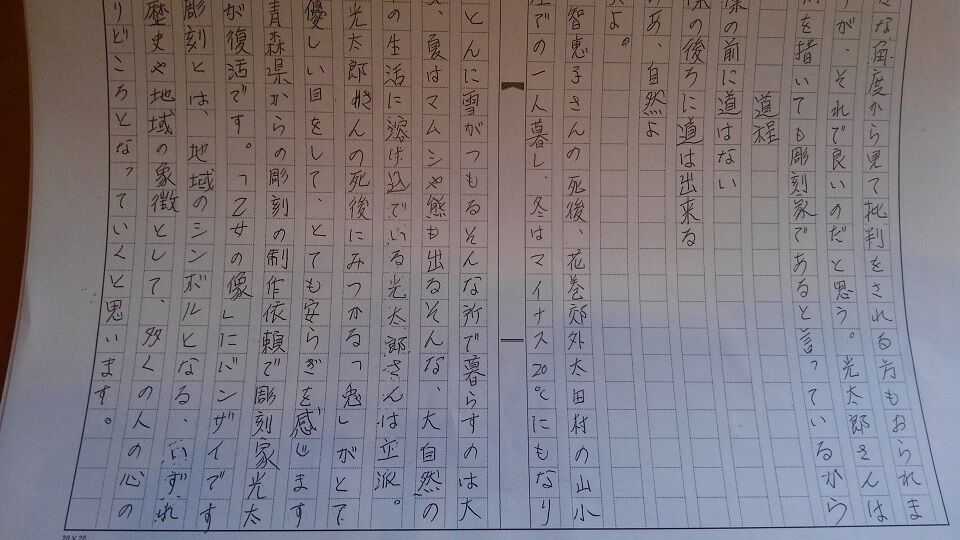 々な角度から見て批判をされる方もおられま
すが、それで良いのだと思う。光太郎さんは
を描いても彫刻家であると言っているから
道程
僕の前に道はない
僕の後ろに道は出来る
ああ、自然よ
父よ。
智恵子さんの死後、花巻郊外太田村の山小
屋での一人暮し、冬はマイナス20℃にもなり
とんに雪がつもるそんな所で暮らすのは大
夏はマムシや熊も出るそんな、大自然の
の生活に溶け込でいる光太郎さんは立派。
光太郎さんの死後にみつかる「兎」がとて
優しい目をして、とても安らぎを感じます
青森県からの彫刻の制作依頼で彫刻家光太
が復活です。「乙女の像」にバンザイです
彫刻とは、地域のシンボルとなる、いずれ
歴史や地域の象徴として、多くの人の心の
りどころとなっていくと思います。
20×20